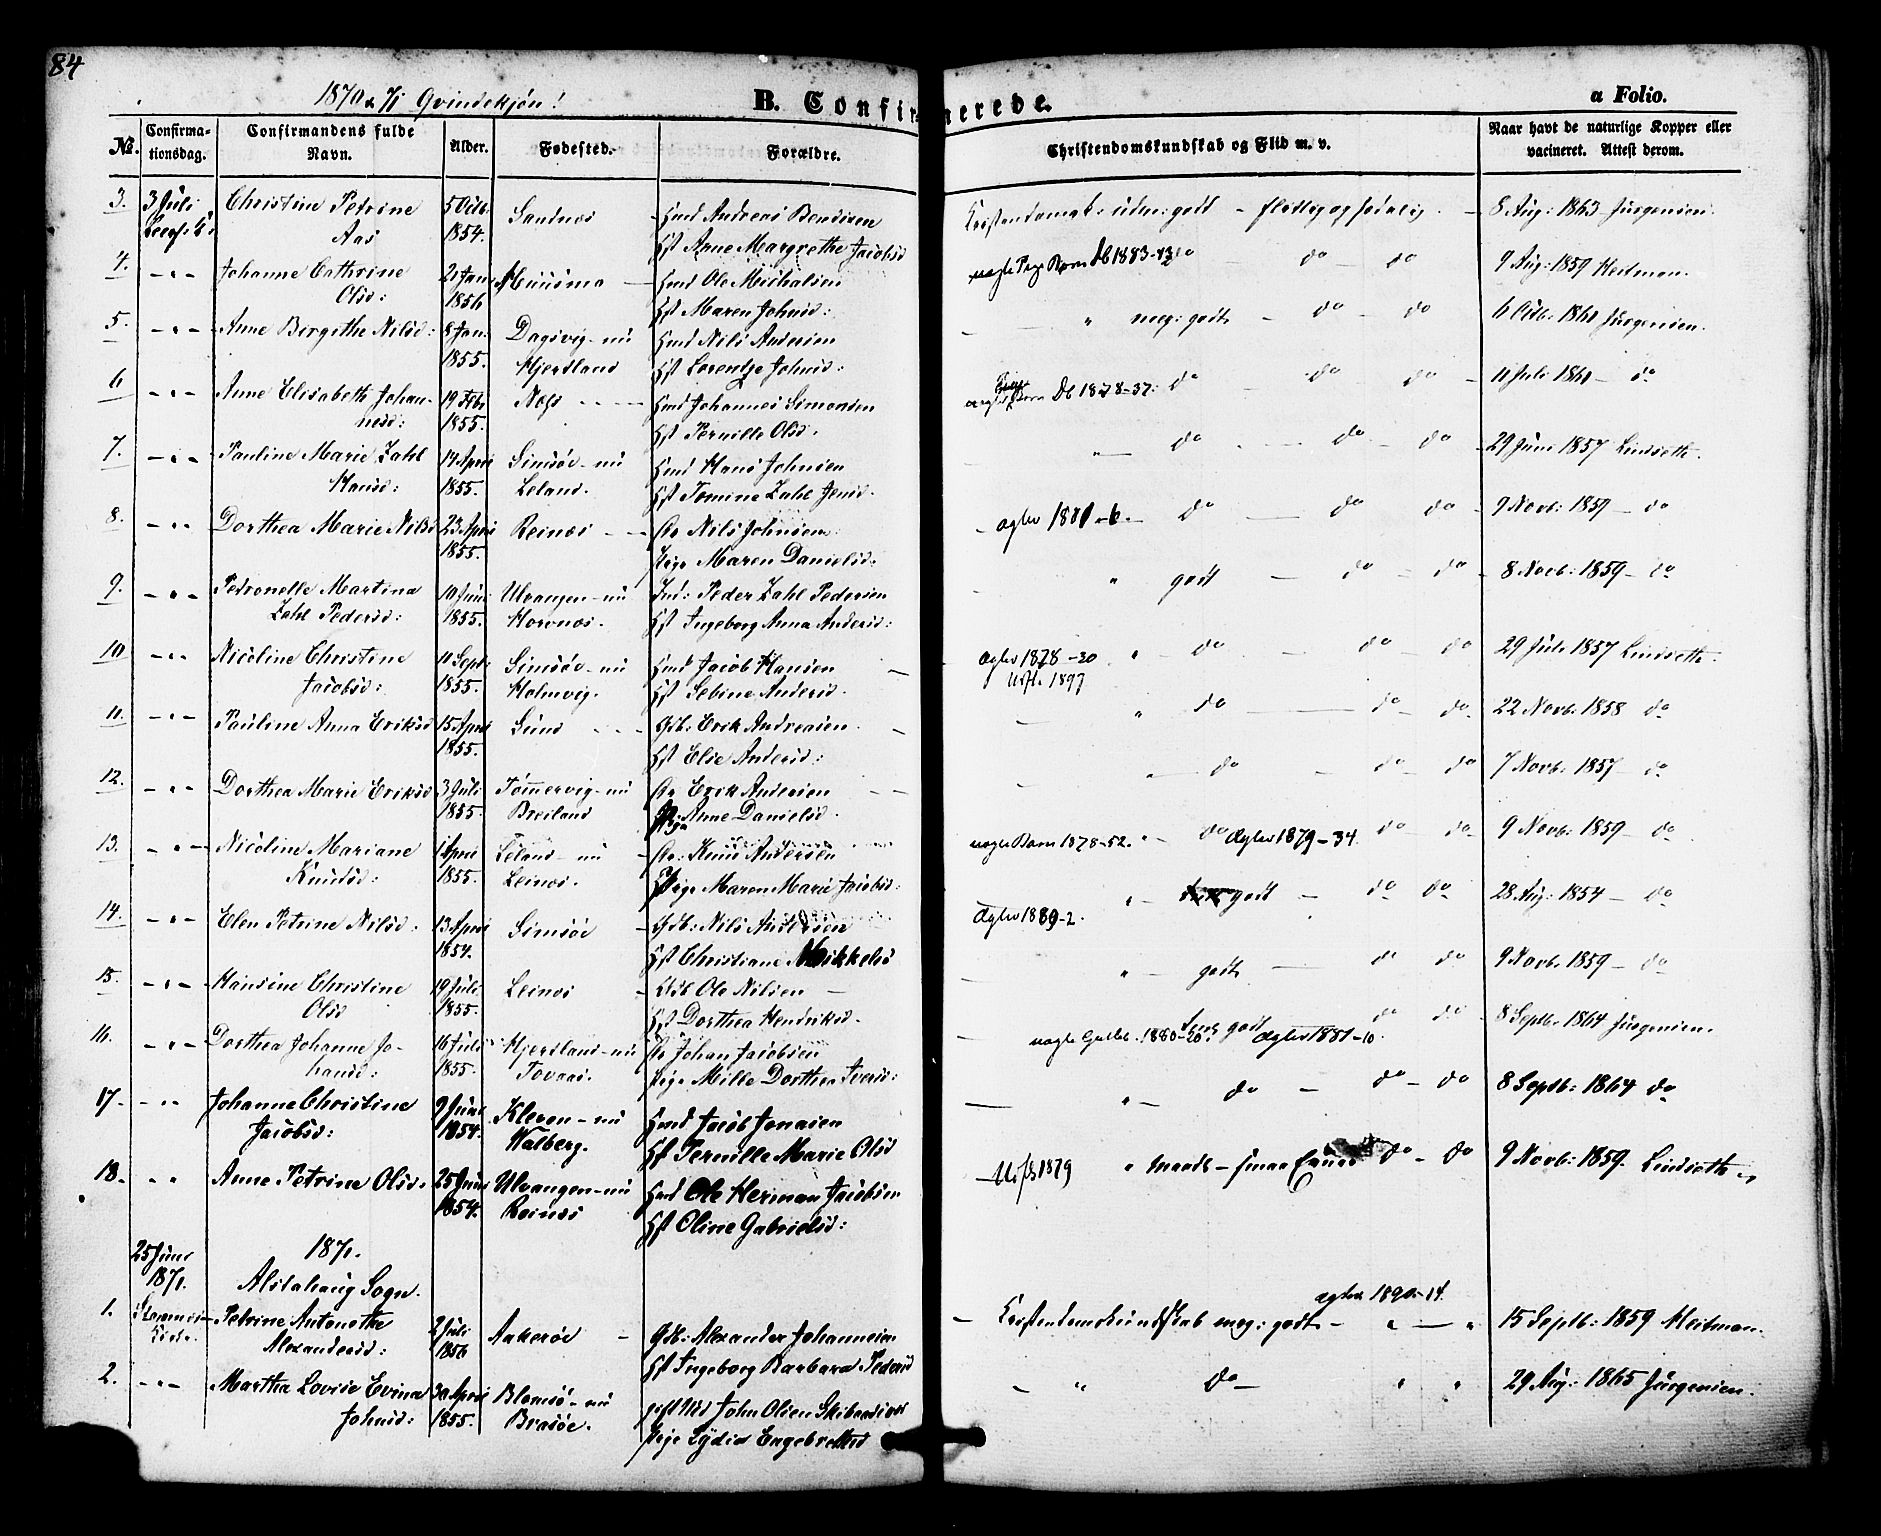 84
1870 & 71 Qvindekjøn!
B. Confirmerede.
a Folio.
No. Confirmationsdag. Confirmandens fulde Navn. Alder. Fødested. Forældre. Christendomskundskab og Flid m. v. Naar havt de naturlige Kopper eller vacineret. Attest derom.
3. 3 Juli Christine Petrine Aas 5 Octb. 1854. Sandnes Hmd Andreas Bendixen Hst Anne Margrethe Jacobsd Kristendomsk: uden: godt - flittig og sødelig. 8 Aug: 1863 Jürgensen.
4. - " - Johanne Cathrine Olsd: 2 Jan 1856 Huusmo Hmd Ole Michalsen Hst Maren Johnsd: do do 9 Aug: 1859 Heitman.
5. - " - Anne Birgithe Nilsd: 8 Jan: 1855. Dagsvig - nu Hjertland Hmd Nils Andersen Hst Lorentze Johnsd: " meg: godt - do do 6 Octb: 1861 Jürgensen.
6 - " - Anne Elisabeth Johannesd: 19 Feb: 1855. Næss Hmd Johannes Simonsen Hst Pernille Olsd. Db 1878-37. do do do 11 Juli 1861 - do
7. - " - Pauline Marie Zahl Hansd: 14 April 1855. Simsøe - nu Leland. Hmd Hans Johnsen Hst Tomine Zahl Jensd. " do - do - do 29 Juni 1857 Lindseth.
8. - " - Dorthea Marie Nilsd 23 April 1855. Reinæs Nils Johnsen Pige Maren Danielsd: - do do do 9 Novb: 1859 - do
9. - " - Petronelle Martina Zahl Pedersd: 10 Juni 1855. Ulvangen - nu Hornæs. Ind: Peder Zahl Pedersen Hst Ingeborg Anna Andersd: " godt - do - do 8 Novb: 1859 - do
10 - " - Nicoline Christine Jacobsd: 11 Sept: 1855. Simsøe - nu Holmvig. Hmd Jacob Hansen Hst Sebine Andersd. Ægtev 1878-30 Utfl. 1897 " - do do do 29 Juli 1857 Lindseth.
11. - " - Pauline Anna Eriksd 15 April 1855. Sund Gdb: Erik Andreasen Hst Else Andersd: " do do - do 22 Novb: 1858 do
12. - " - Dorthea Marie Eriksd 3 Juli 1855. Tømmervig - nu Breiland Erik Andersen Pige Anne Danielsd. " - do - do - do 7 Novb: 1857 - do
13. - " - Nicoline Mariane Knudsd: 1 April 1855. Leland - nu Leines. Knud Andersen Pige Maren Marie Jacobsd: uægte Barn 1878-52. " - do Ægtev 1879-34. do - do 9 Novb: 1859 - do
14. - " - Elen Petrine Nilsd. 13 April 1854. Simsøe Gdb: Nils Andersen Hst Christiane Mikkelsd Ægtev 1889-2. " - godt - do do 28 Aug: 1854 - do
15. - " - Hansine Christine Olsd 19 Juli 1855. Leines Ole Nilsen Hst Dorthea Hendriksd. " - godt - do do 9 Novb: 1859 - do
16. - " - Dorthea Johanne Johansd: 16 Juli 1855. Hjertland - nu Tovaas. Johan Jacobsen Pige Mille Dorthea Iversd: uægte 1880-20. godt Ægtev 1881-10. do do 8 Septb: 1864 Jürgensen.
17. - " - Johanne Christine Jacobsd: 9 Juni 1854. Kleven - nu Halberg. Hmd Jacob Jonasen Hst Pernille Marie Olsd " - do - do - do 8 Septb: 1864 do
18. " " Anne Petrine Olsd. 25 Juni 1854. Ulvangen - nu Reinæs Hmd Ole Herman Jacobsen Hst Oline Gabrielsd: 1879 " maadl - smaa Evner do - do 9 Novb: 1859. Lindseth
25 Juni 1871.
1871.
Alstahaug Sogn.
1. Petrine Antonethe Alexandersd: 2 Juli 1856 Aakerøe Gdb: Alexander Johannesen Hst Ingeborg Barbara Pedersd Kristendomskundskab meg: godt - Ægtev. 1890-14. 15 Septb: 1859 Heitman.
2. - " - Martha Lovise Evina Johnsd: 30 April 1855. Blomsø - nu Brasøe. gift Md John Olsen Pige Lydia Engebretsd - " do - " " 29 Aug: 1865 Jürgensen.